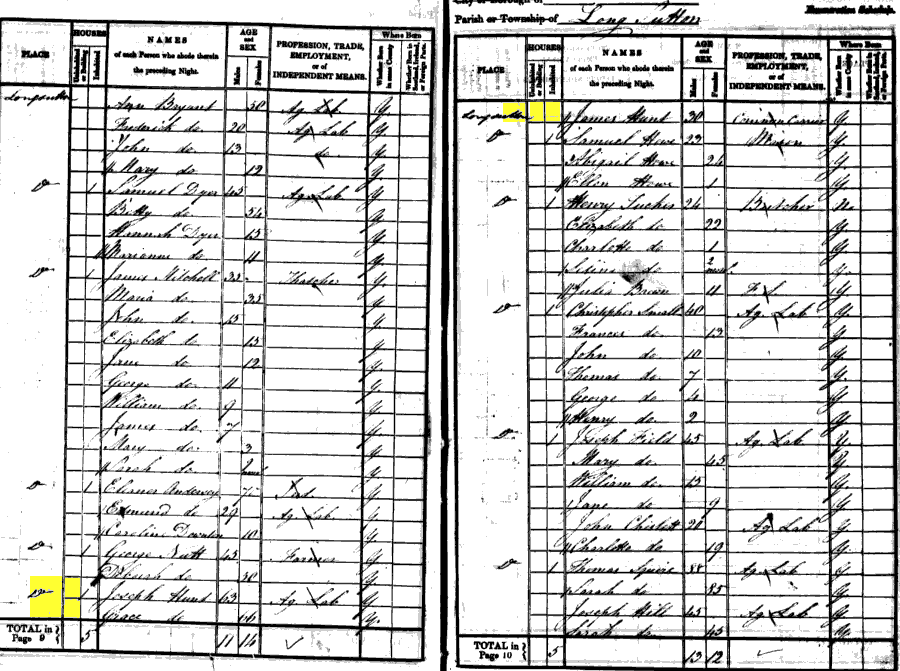 PLACE
HOUSES
Uninhabited or Building
Inhabited
NAMES
of each Person who abode therein
the preceding Night.
AGE
and
SEX
Males
Females
PROFESSION, TRADE,
EMPLOYMENT,
or of
INDEPENDENT MEANS.
Where Born
Whether Born in same County
Whether Born in Scotland, Ireland, or Foreign Parts.
Ann Bryant 50 Ag Lab Y
Frederick do 20 Ag Lab Y
John do 13 do Y
Mary do 12 Y
do 1 Samuel Dyer 45 Ag Lab Y
Betty do 54 Y
Hannah Dyer 15 Y
Marianne do 11 Y
do 1 James Mitchell 35 Thatcher Y
Maria do 35 Y
John do 15 Y
Elizabeth do 13 Y
Jane do 12 Y
George do 11 Y
William do 9 Y
James do 7 Y
Mary do 3 Y
Sarah do Y
do 1 Eleanor Y
Edmund do 29 Ag Lab Y
Caroline 10 Y
do 1 George Nutt 45 Farmer Y
Deborah do 50 Y
do 1 Joseph Hunt 63 Ag Lab Y
Grace do 66 Y
TOTAL in Page 9 } 5 11 14
Parish or Township of Long Sutton
Enumeration Schedule.
PLACE
HOUSES
Uninhabited or Building
Inhabited
NAMES
of each Person who abode therein
the preceding Night.
AGE
and
SEX
Males
Females
PROFESSION, TRADE,
EMPLOYMENT,
or of
INDEPENDENT MEANS.
Where Born
Whether Born in same County
Whether Born in Scotland, Ireland, or Foreign Parts.
Longsutton James Hunt 30 Common Carrier Y
do 1 Samuel Howe 23 Mason Y
Abigail Howe 24 Y
Ellen Howe 1 Y
do 1 Henry 24 Butcher No
Elizabeth do 22 Y
Charlotte do 1 Y
do 2 Y
Julia Brown 11 F.S. Y
do 1 Christopher Small 40 Ag Lab Y
Frances do 13 Y
John do 10 Y
Thomas do 7 Y
George do 4 Y
Henry do 2 Y
do 1 Joseph Field 45 Ag Lab Y
Mary do 45 Y
William do 15 Y
Jane do 9 Y
John 20 Ag Lab Y
Charlotte do 19 Y
do 1 Thomas Squire 85 Ag Lab Y
Sarah do 85 Y
Joseph Hill 45 Ag Lab Y
Sarah do 45 Y
TOTAL in Page 10 } 5 13 12